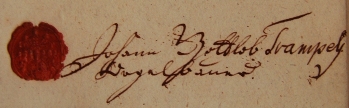 Johann Gottlob Trampely
Orgelbauer